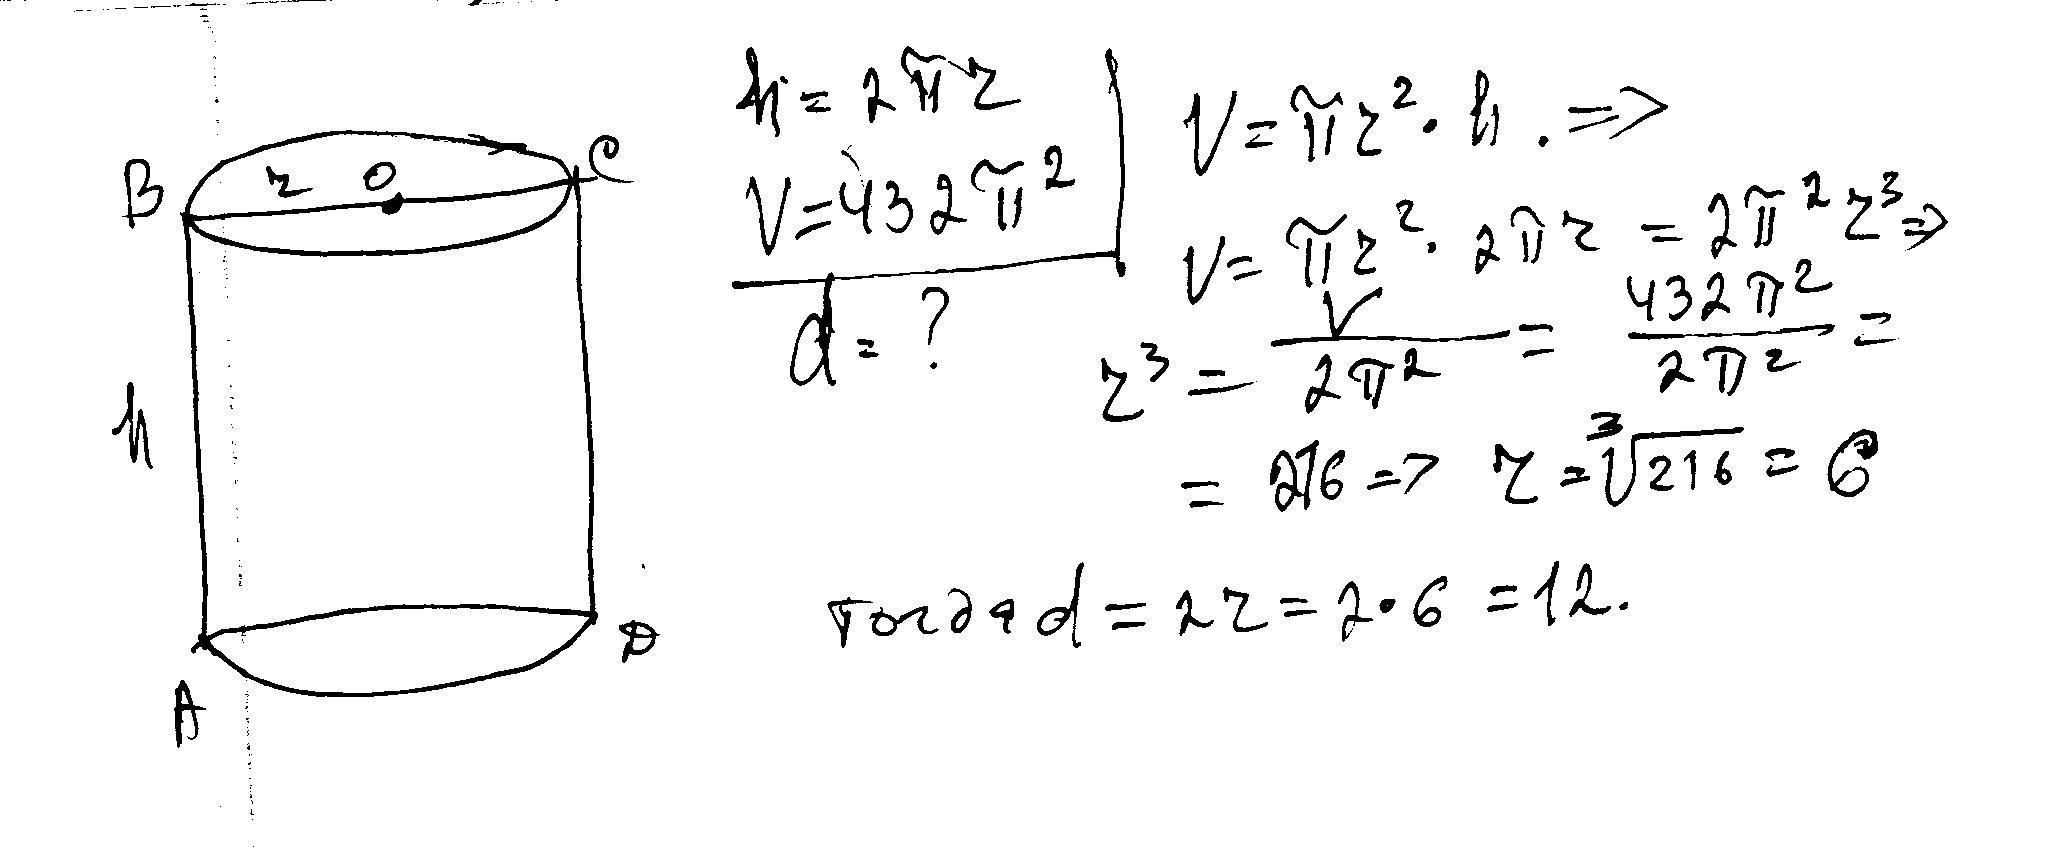 B r O C
h
A D
h = 2πr
V = 432π²
d = ?
V = πr² · h. =>
V = πr² · 2πr = 2π²r³ =>
r³ = V/2π² = 432π²/2π² =
= 216 => r = ³√216 = 6
тогда d = 2r = 2·6 = 12.